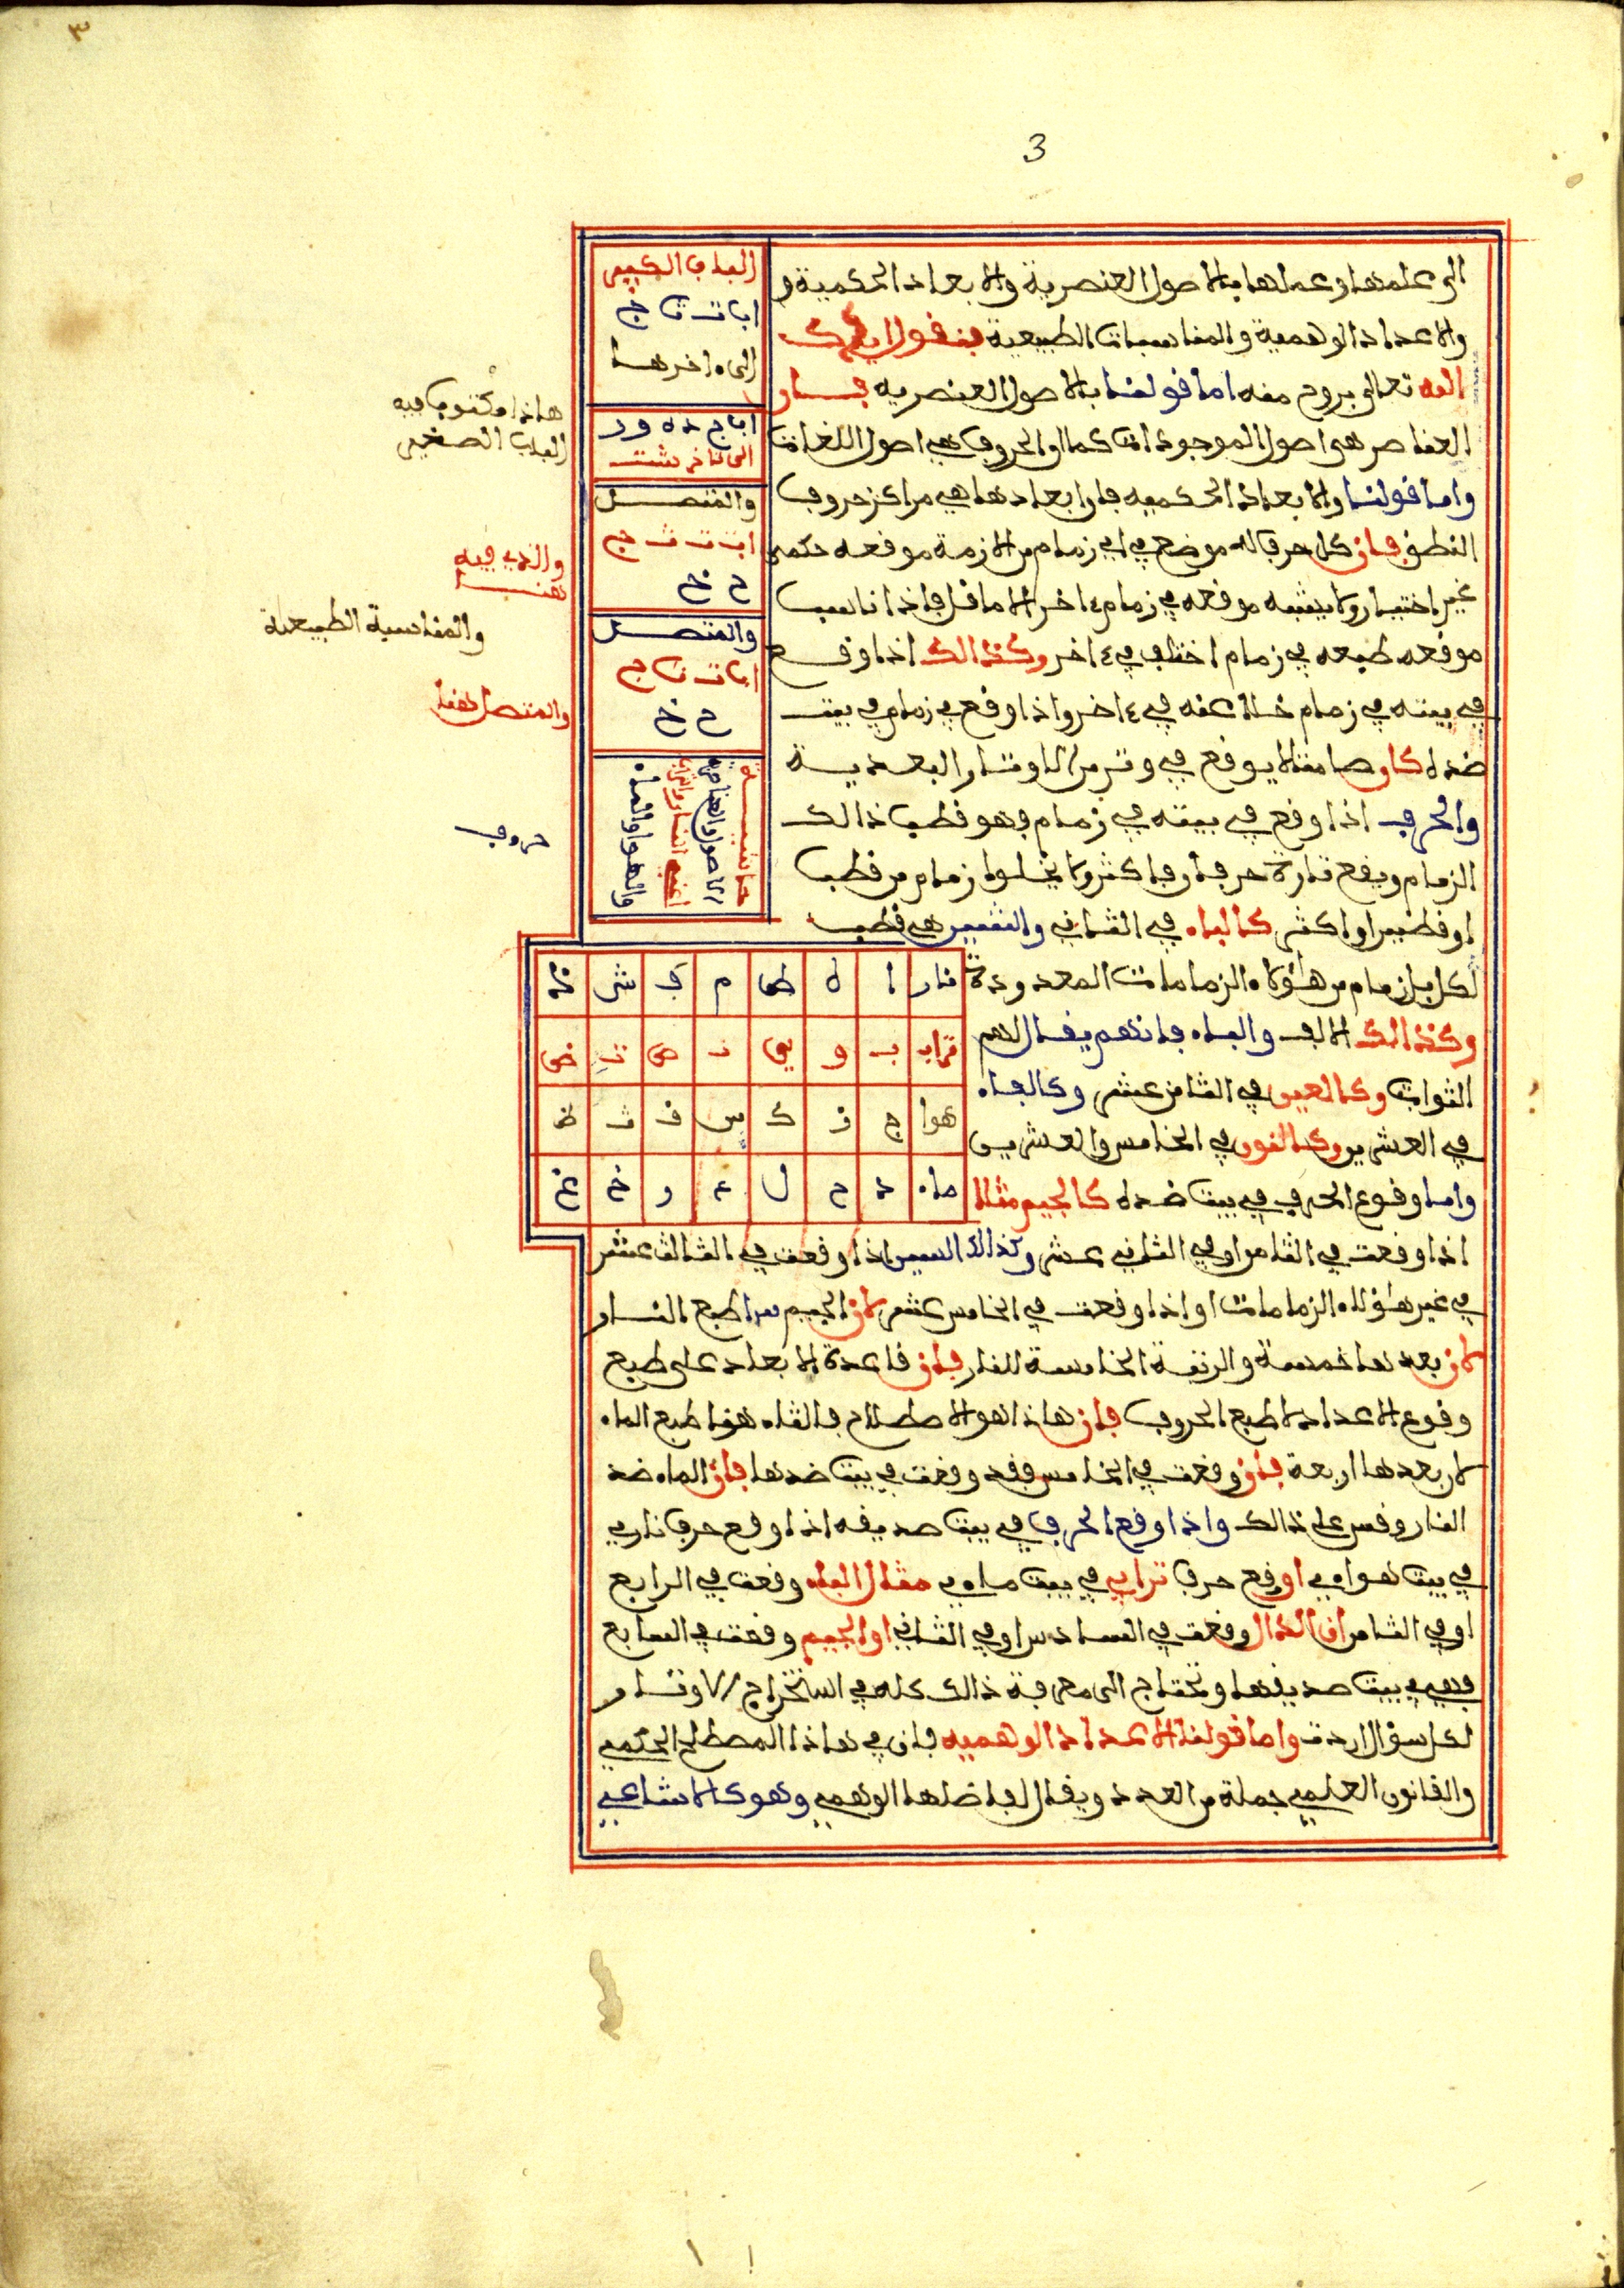 ٣
3
الى علمها وعملها بالاصول العنصرية والابعاد الحكمية و
والاعداد الوهمية والمناسبات الطبيعية فنقول ايدك
الله تعالى بروح منه اما قولنا بالاصول العنصريه فان
العناصر هي اصول الموجودات كما ان الحروف هي اصول اللغات
واما قولنا والابعاد الحكميه فان ابعادها هي مراكز حروف
النطق فان كل حرف له موضع في اي زمام من الازمة موقعه حكمي
غير اختيار ولا يشبه موقعه في زمام ءاخر الا ما قل فاذا ناسب
موقعه طبعه في زمام اختلف في ءاخر وكذالك اذا وقع
في بيته في زمام خلا عنه في ءاخر واذا وقع في زمام في بيت
ضده كان صامتا لا يوقع في وتر من الاوتار البعدية
والحرف اذا وقع في بيته في زمام فهو قطب ذالك
الزمام ويقع تارة حرفا وفاكثر ولا يخلوا زمام من قطب
او قطبين او اكثر كالباء في الثاني والشين هي قطب
لكل زمام من هاؤلاء الزمامات المعدودة
وكذالك الالف والباء فانهم يقال لهم
الثوابت وكالعين في الثامن عشر وكالفاء
في العشرين وكالنون في الخامس والعشرين
واما وقوع الحرف في بيت ضده كالجيم مثلا
اذا وقعت في الثامن او في الثاني عشر وكذالك السين اذا وقعت في الثالث عشر
في غير هاؤلاء الزمامات او اذا وقعت في الخامس عشر لان الجيم طبع النار
لان بعدها خمسة والرتبة الخامسة للنار فان قاعدة الابعاد على طبع
وقوع الاعداد لا طبع الحروف فان هاذا هو الاصطلاح فالثاء هنا طبع الماء
لان بعدها اربعة فان وقعت في الخامس فقد وقعت في بيت ضدها فان الماء ضد
النار وقس على ذالك واذا وقع الحرف في بيت صديقه اذا وقع حرف ناري
في بيت هواءي او وقع حرف ترابي في بيت ماءي مثال الباء وقعت في الرابع
او في الثامن او الدال وقعت في السادس او في الثاني او الجيم وقعت في السابع
فهي في بيت صديقها وتحتاج الى معرفة ذالك كله في استخراج الاوتار
لكل سؤال اردت واما قولنا الاعداد الوهميه فان في هاذا المصطلح الحكمي
والقانون العلمي جملة من العدد ويقال لفاضلها الوهمي وهو كالاشاعي
الباب الكبير
ا ب ت ث ج
الى ءاخرها
ا ب ج د ه و ز
الى ءاخر شت
والمنفصل
ا ب ت ث ج
ح خ
والمتصل
ا ب ت ث ج
ح خ
حاشية
الاصول والعناصر
اعني النار والتراب
والهوا والماء
نار ا ه ط م ف ش ذ
تراب ب و ي ن ص ت ض
هوا ج ز ك س ق ث ظ
ماء د ح ل ع ر خ غ
هاذا مكتوب فيه
الباب الصغير
والذي فيه
هنا
والمناسبة الطبيعية
والمتصل هنا
حروف